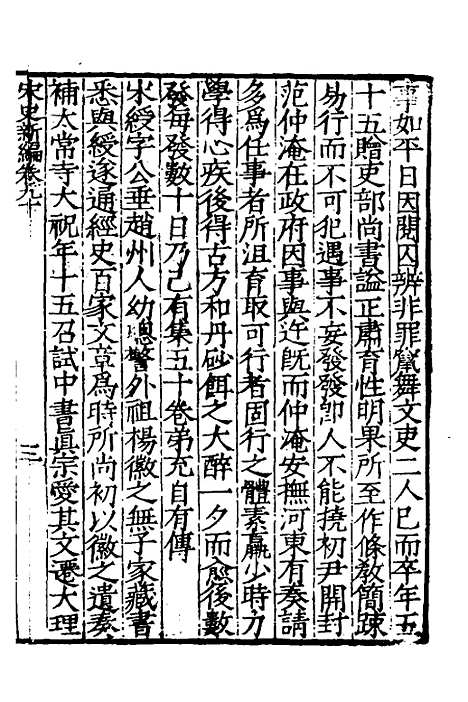 事如平日因閱囚辨非罪竄舞文吏二人已而卒年五
十五贈吏部尚書謚正肅育性明果所至作條教簡疎
易行而不可犯遇事不妄發發卽人不能撓初尹開封
范仲淹在政府因事與迕旣而仲淹安撫河東有奏請
多爲任事者所沮育取可行者固行之體素羸少時力
學得心疾後得古方和丹砂餌之大醉一夕而愈後數
發每發數十日乃已有集五十卷弟充自有傳
宋綬字公垂趙州人幼聰警外祖楊徽之無子家藏書
悉與綬遂通經史百家文章爲時所尚初以徽之遺奏
補太常寺大祝年十五召試中書眞宗愛其文遷大理
宋史新編卷九十
三